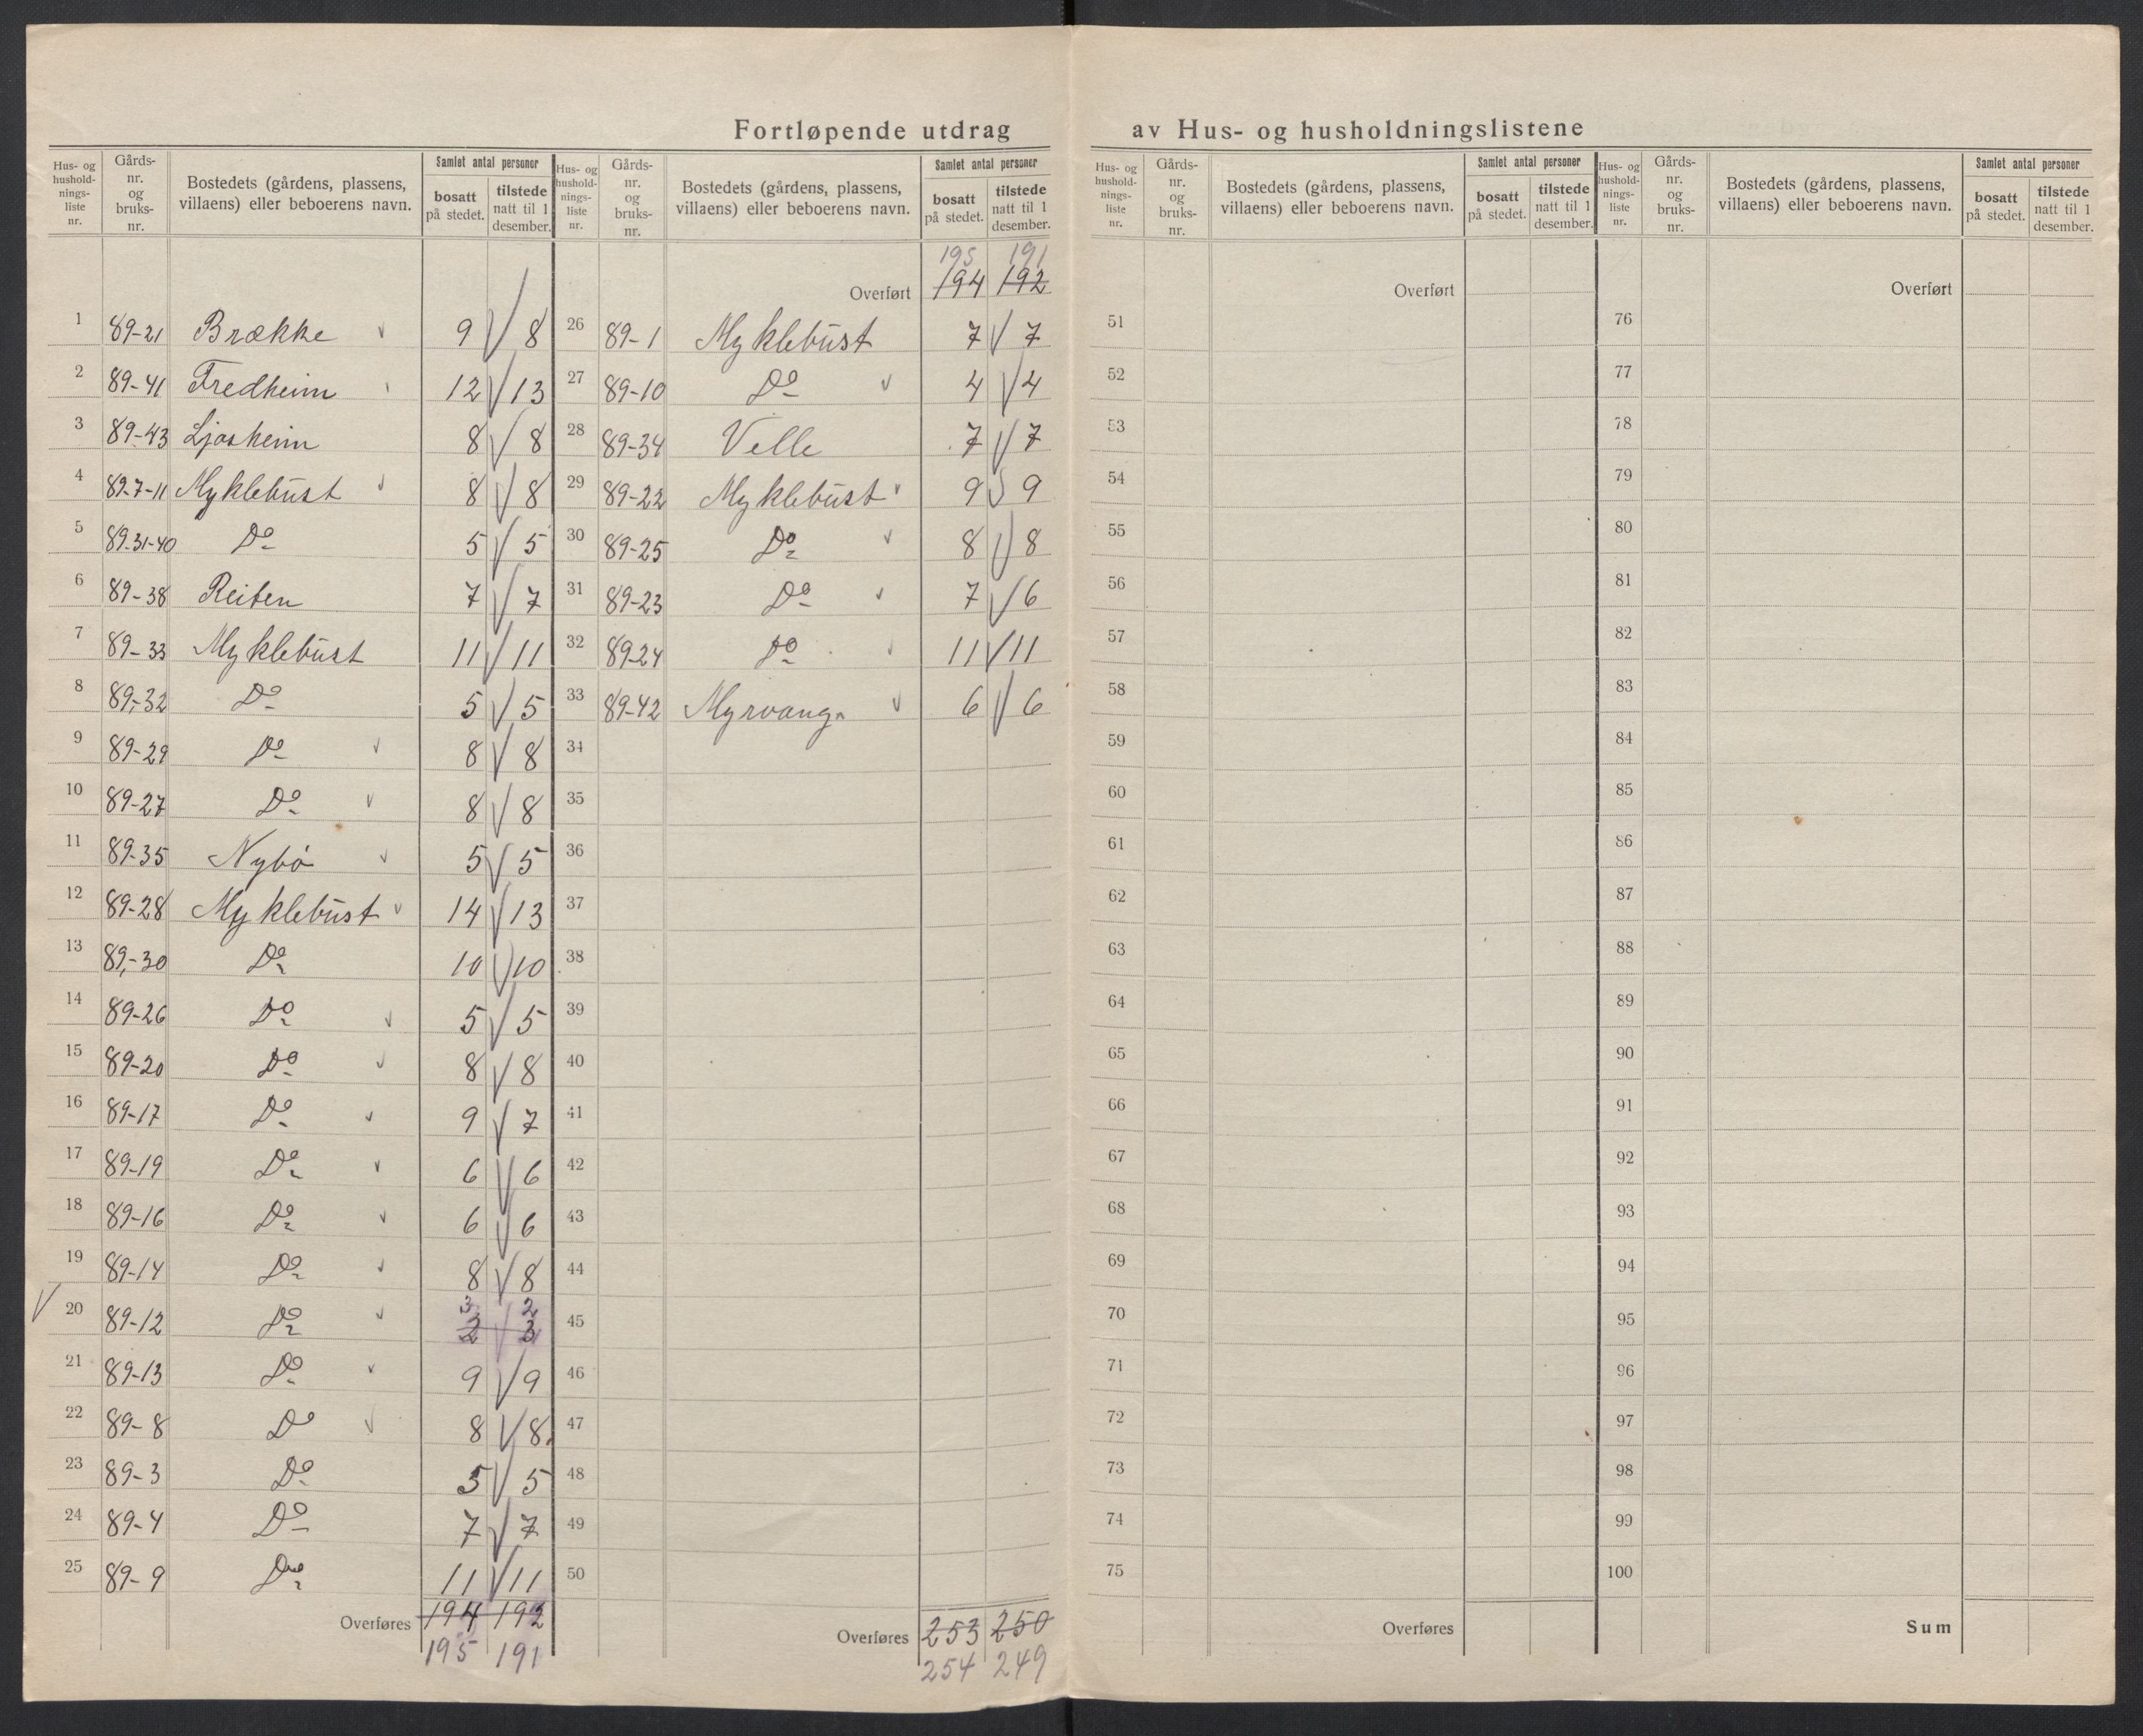 Fortløpende utdrag av Hus- og husholdningslistene
Hus- og hushold-nings-liste nr. Gårds-nr. og bruks-nr. Bostedets (gårdens, plassens, villaens) eller beboerens navn. Samlet antal personer bosatt på stedet. tilstede natt til 1 desember.
1 89-21 Brække 9 8
2 89-41 Fredheim 12 13
3 89-43 Ljosheim 8 8
4 89-7-11 Myklebust 8 8
5 89-31-40 Do 5 5
6 89-38 Reiten 7 7
7 89-33 Myklebust 11 11
8 89-32 Do 5 5
9 89-29 Do 8 8
10 89-27 Do 8 8
11 89-35 Nybö 5 5
12 89-28 Myklebust 14 13
13 89-30 Do 10 10
14 89-26 Do 5 5
15 89-20 Do 8 8
16 89-17 Do 9 7
17 89-19 Do 6 6
18 89-16 Do 6 6
19 89-14 Do 8 8
3 2
20 89-12 Do 2 3
21 89-13 Do 9 9
22 89-8 Do 8 8
23 89-3 Do 5 5
24 89-4 Do 7 7
25 89-9 Do 11 11
Overføres 194 192
195 191
Hus- og hushold-nings-liste nr. Gårds-nr. og bruks-nr. Bostedets (gårdens, plassens, villaens) eller beboerens navn. Samlet antal personer bosatt på stedet. tilstede natt til 1 desember.
195 191
Overført 194 192
26 89-1 Myklebust 7 7
27 89-10 Do 4 4
28 89-34 Velle 7 7
29 89-22 Myklebust 9 9
30 89-25 Do 8 8
31 89-23 Do 7 6
32 89-24 Do 11 11
33 89-42 Myrvang 6 6
34
35
36
37
38
39
40
41
42
43
44
45
46
47
48
49
50
Overføres 253 250
254 249
Hus- og hushold-nings-liste nr. Gårds-nr. og bruks-nr. Bostedets (gårdens, plassens, villaens) eller beboerens navn. Samlet antal personer bosatt på stedet. tilstede natt til 1 desember.
Overført
51
52
53
54
55
56
57
58
59
60
61
62
63
64
65
66
67
68
69
70
71
72
73
74
75
Overføres
Hus- og hushold-nings-liste nr. Gårds-nr. og bruks-nr. Bostedets (gårdens, plassens, villaens) eller beboerens navn. Samlet antal personer bosatt på stedet. tilstede natt til 1 desember.
Overført
76
77
78
79
80
81
82
83
84
85
86
87
88
89
90
91
92
93
94
95
96
97
98
99
100
Sum